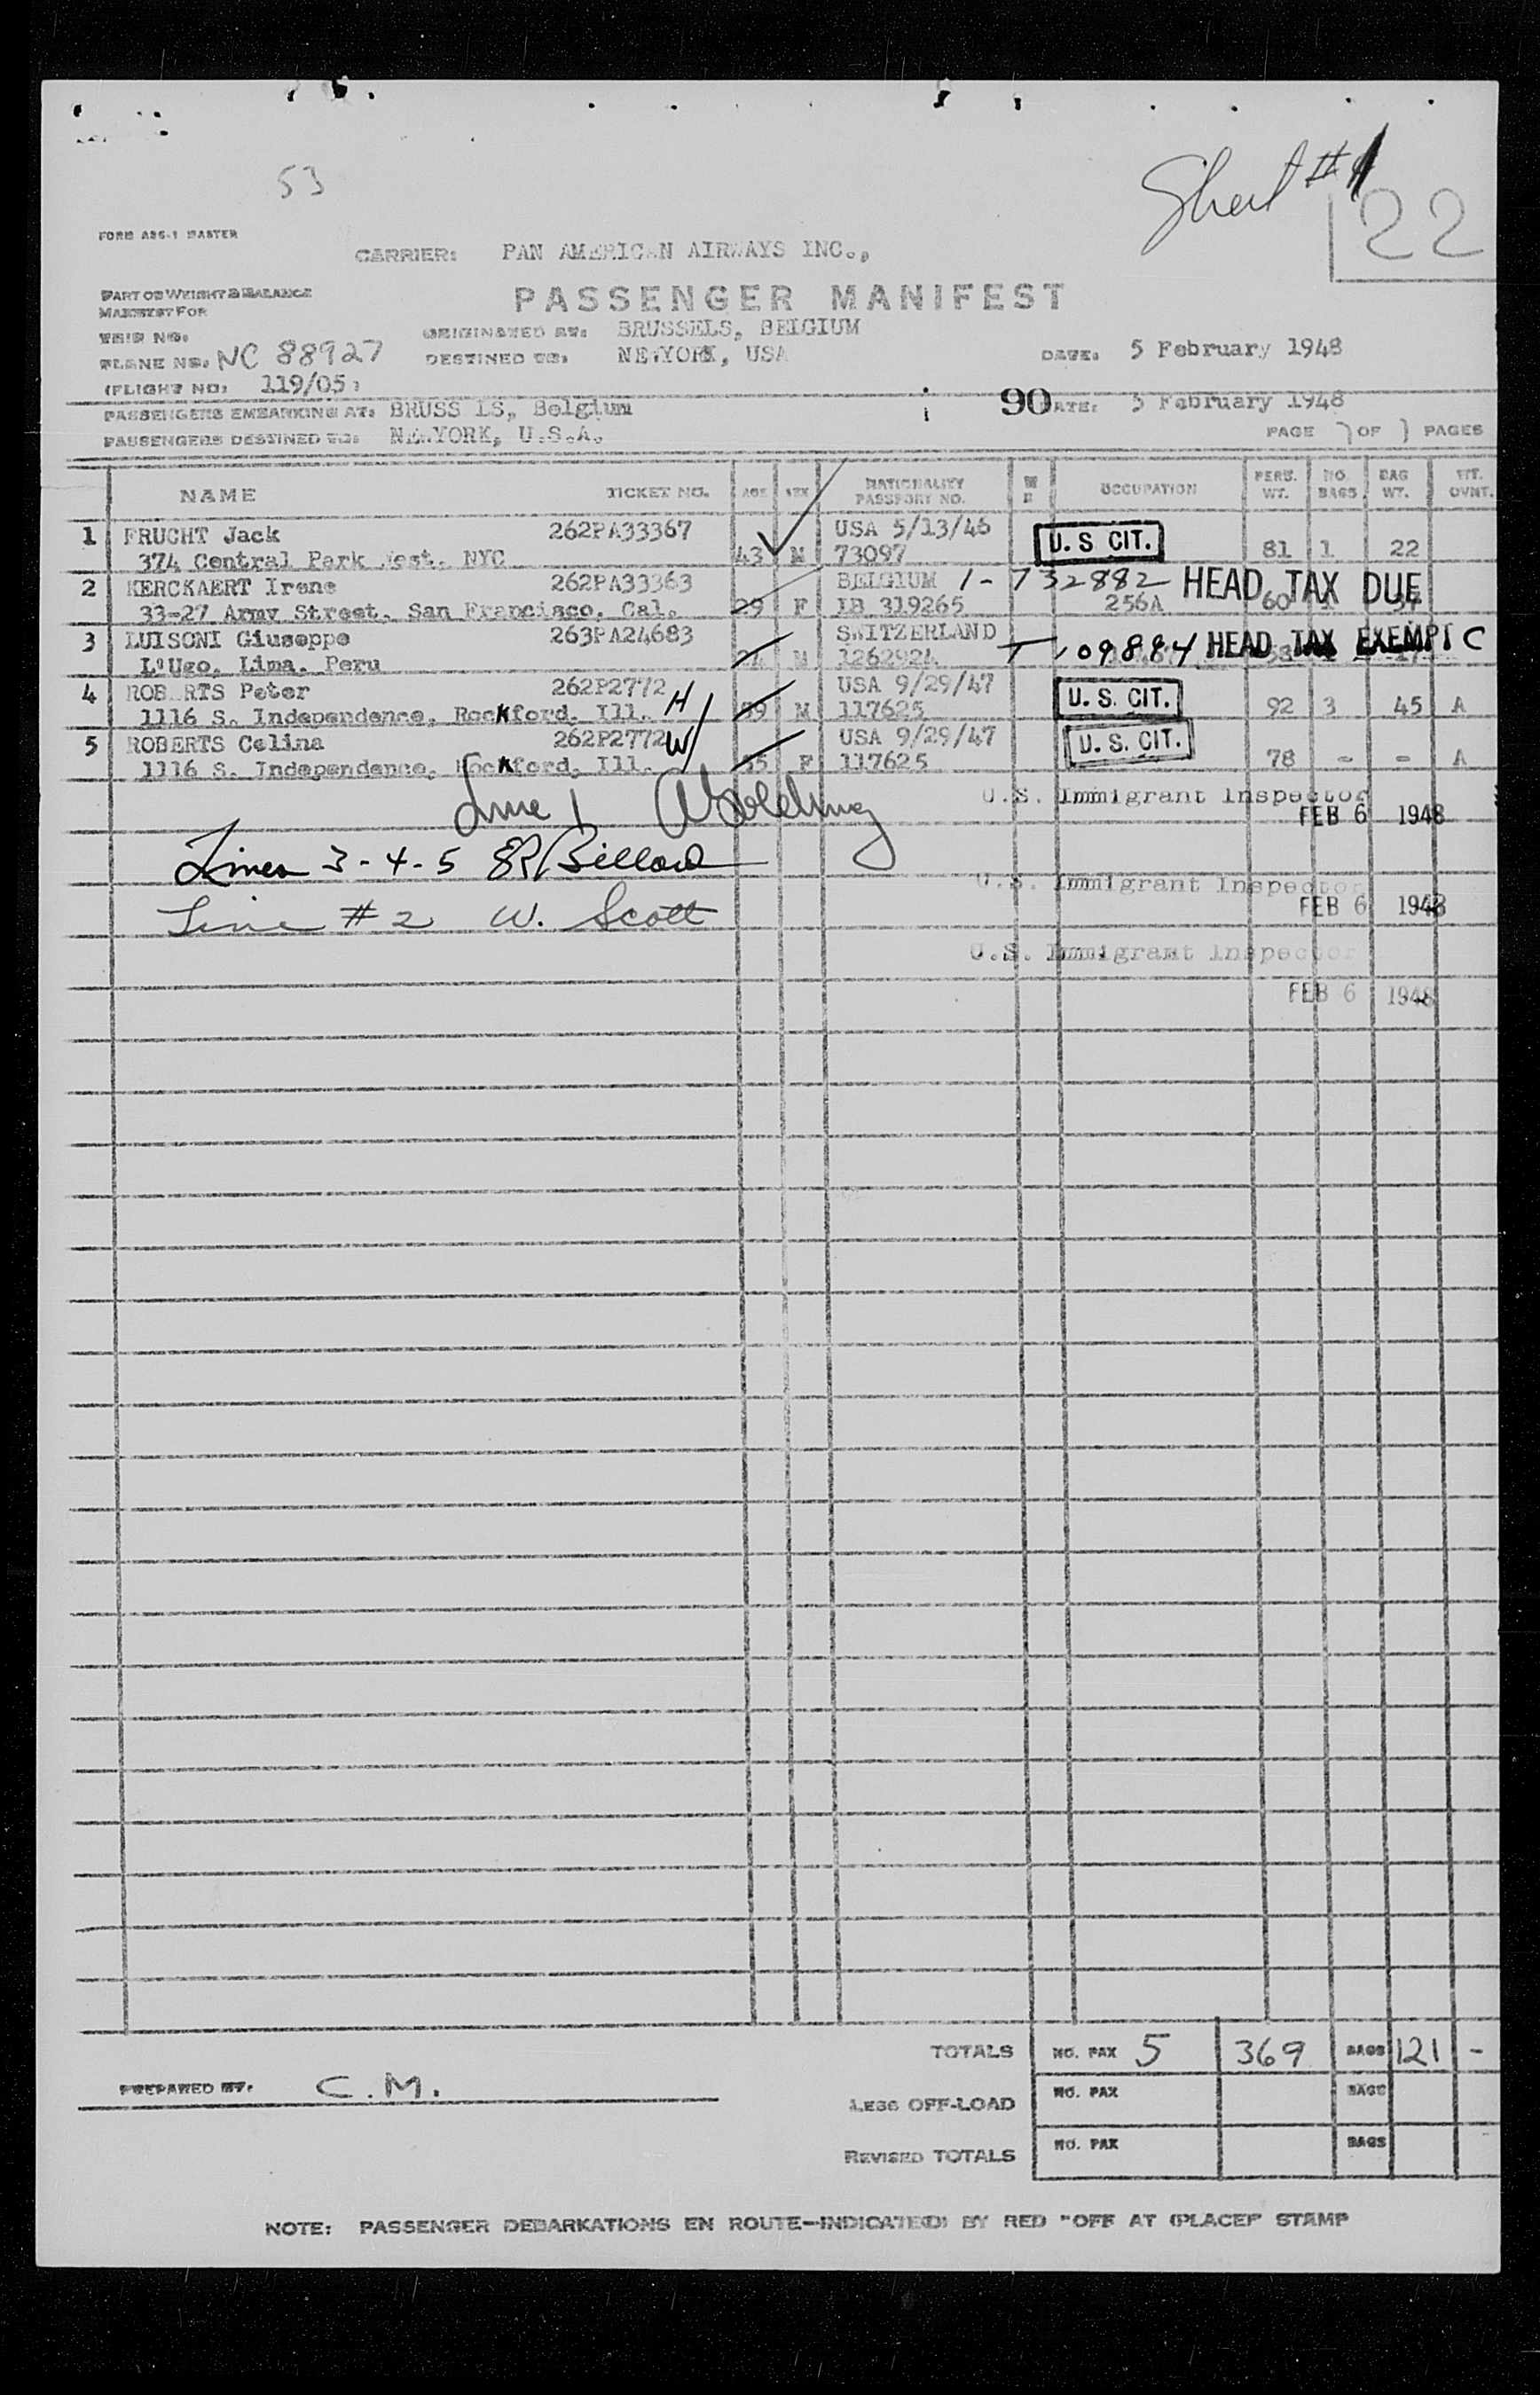 53
Sheet #1
22
FORM A26-1 MASTER
CARRIER: PAN AMERICAN AIRWAYS INC.,
PART OF WEIGHT & BALANCE
MANIFEST FOR
PASSENGER MANIFEST
TRIP NO.
ORIGINATED AT: BRUSSELS, BELGIUM
PLANE NO. NC 88927 DESTINED TO: NEWYORK, USA DATE: 5 February 1948
(FLIGHT NO: 119/05)
PASSENGERS EMBARKING AT: BRUSS LS, Belgium 90 DATE: 5 February 1948
PASSENGERS DESTINED TO: NEWYORK, U.S.A. PAGE 1 OF 1 PAGES
NAME TICKET NO. AGE SEX NATIONALITY PASSPORT NO. OCCUPATION PERS. WT. NO. BAGS BAG WT. WT. OVNT.
1 FRUCHT Jack 262PA33367 USA 5/13/46 U.S CIT.
374 Central Park West, NYC 43 M 73097 81 1 22
2 KERCKAERT Irene 262PA33363 BELGIUM 1-732882 HEAD TAX DUE
33-27 Army Street, San Francisco, Cal. 29 F IB 319265 256A 60
3 LUISONI Giuseppe 263PA24683 SWITZERLAND T 109884 HEAD TAX EXEMPT C
L'Ugo, Lima, Peru M 1262924
4 ROB RTS Peter 262P2772 H USA 9/29/47 U.S. CIT.
1116 S. Independence, Rockford, Ill. 39 M 117625 92 3 45 A
5 ROBERTS Celina 262P2772 W USA 9/29/47 U.S. CIT.
1116 S. Independence, Rockford, Ill. 35 F 117625 78 - - A
Line 1
U.S. Immigrant Inspector
FEB 6 1948
Lines 3-4-5 Billard
U.S. Immigrant Inspector
FEB 6 1948
Line #2 W. Scott
U.S. Immigrant Inspector
FEB 6 1948
TOTALS NO. PAX 5 369 BAGS 121 -
PREPARED BY. C.M.
LESS OFF-LOAD NO. PAX BAGS
REVISED TOTALS NO. PAX BAGS
NOTE: PASSENGER DEBARKATIONS EN ROUTE—INDICATED BY RED "OFF AT (PLACE)" STAMP